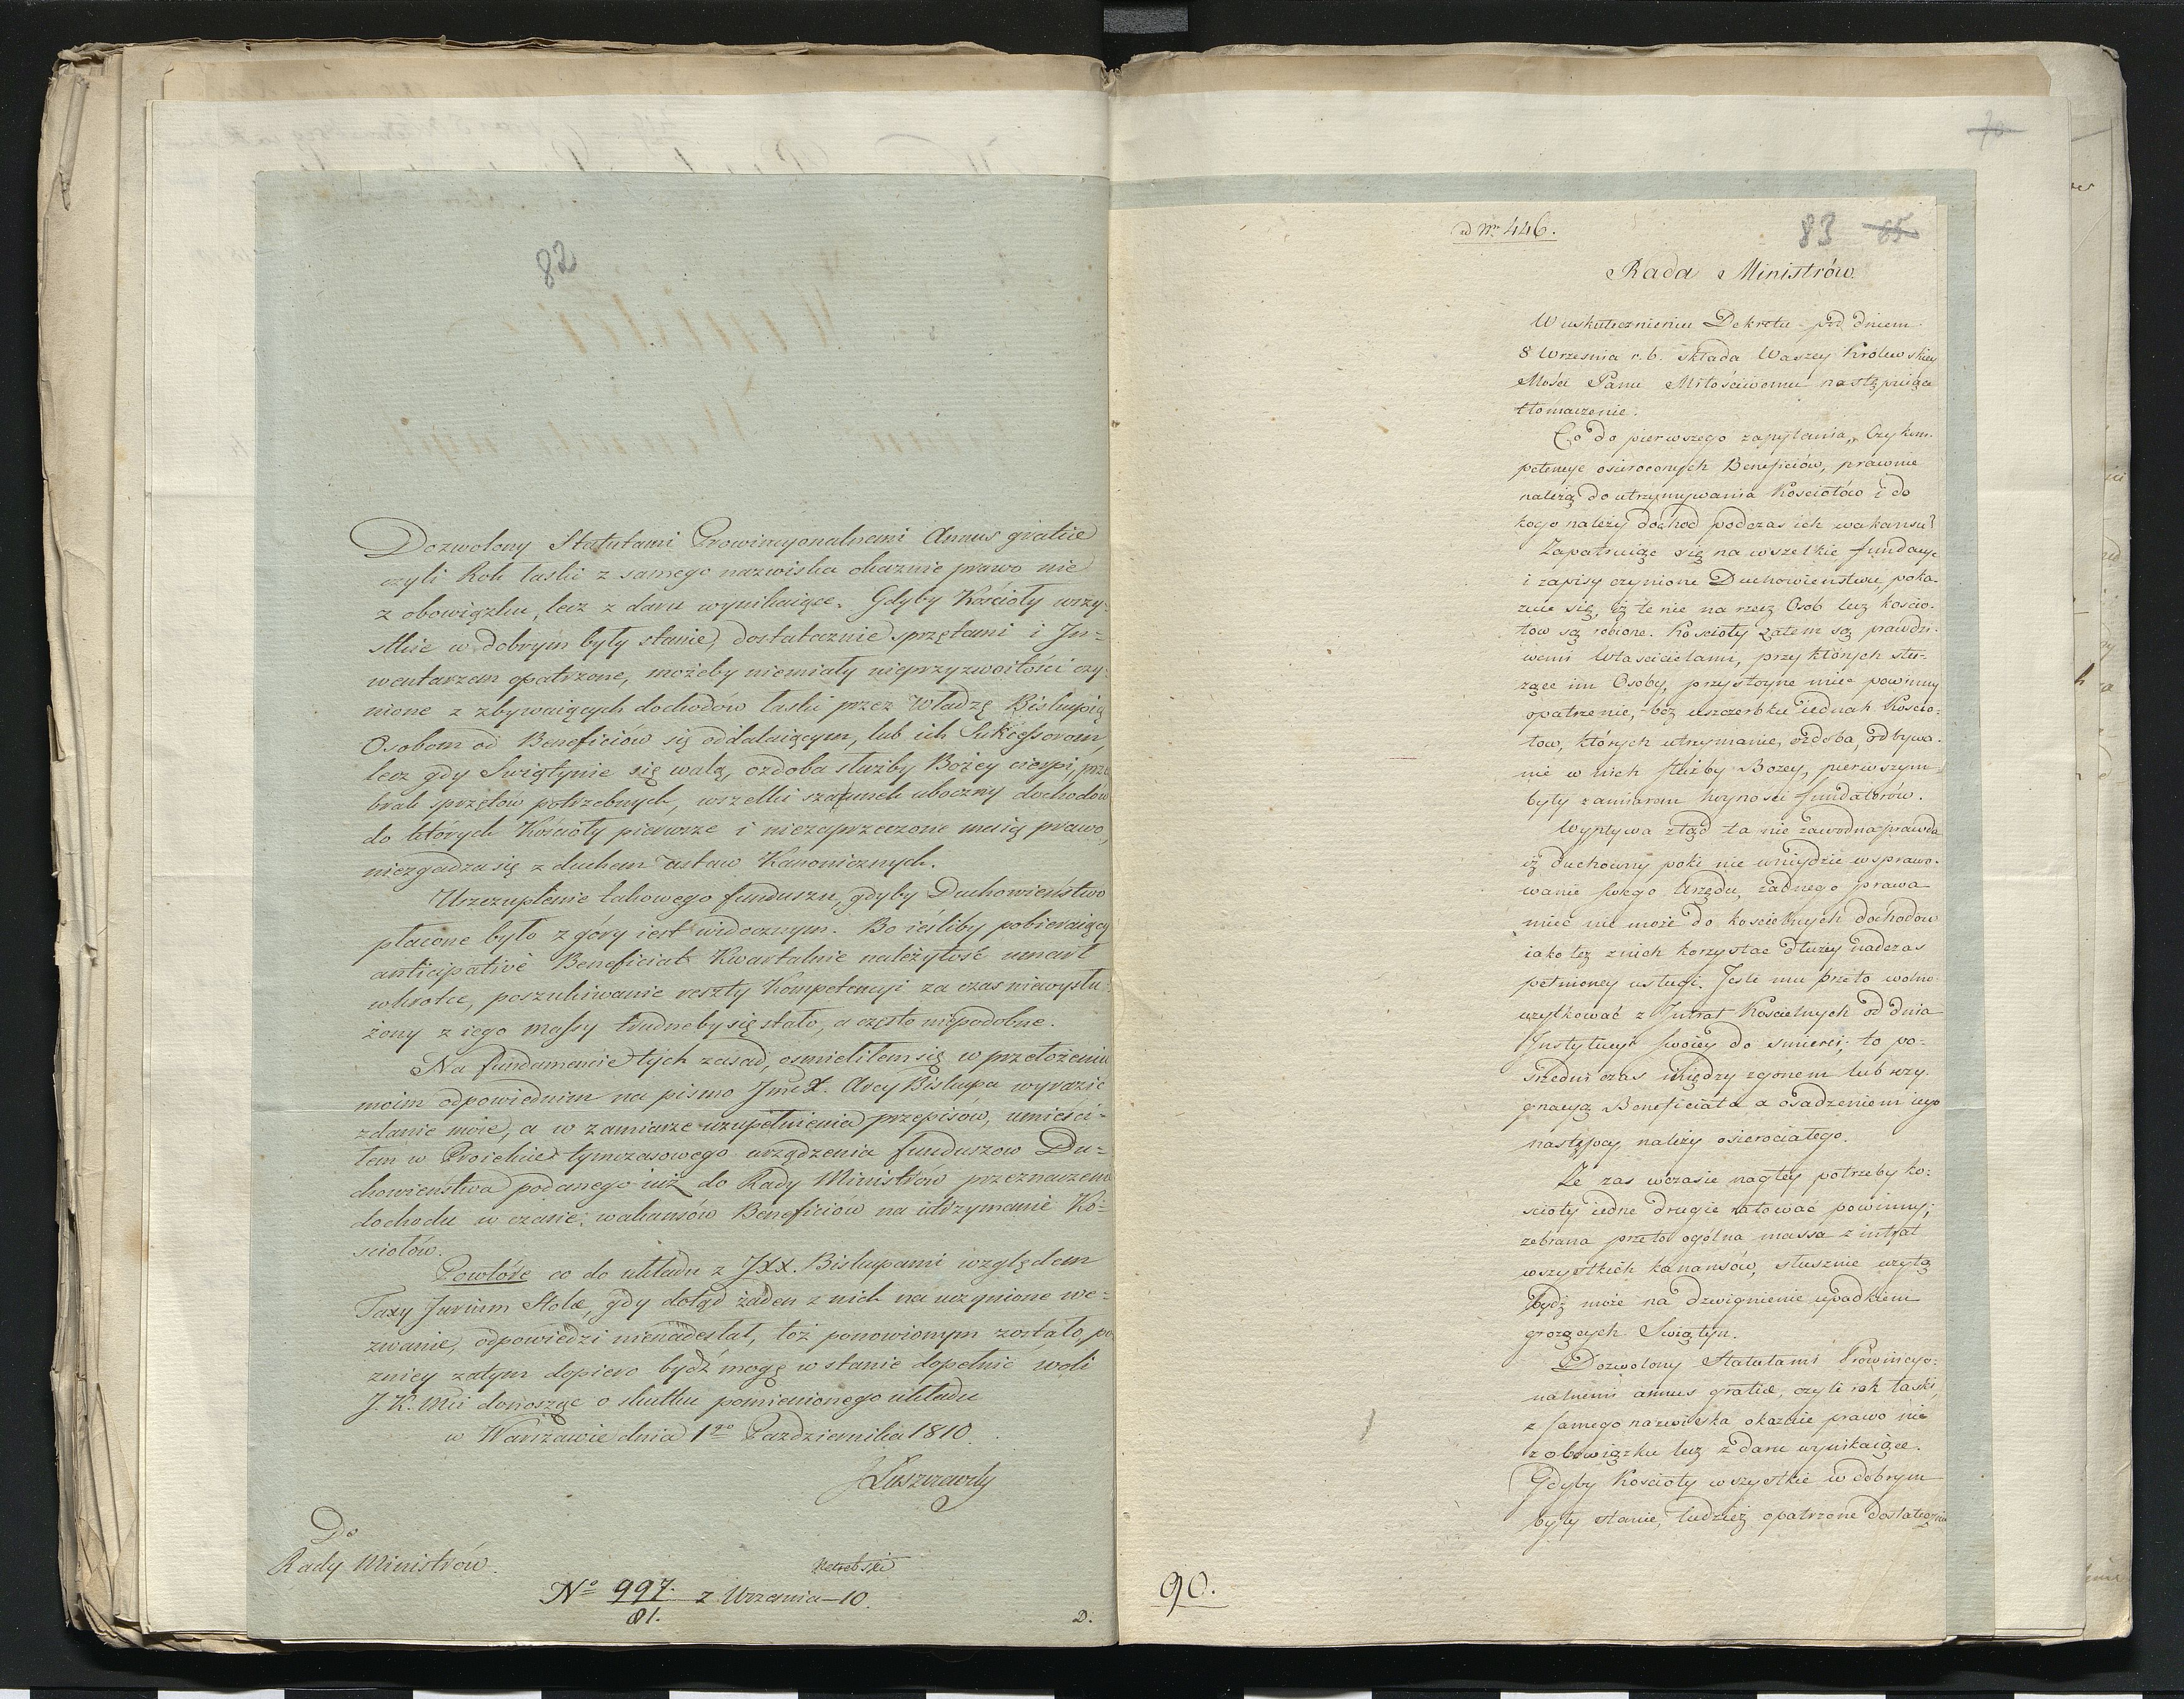 82
Dozwolony Statutami Prowincyonalnemi Annus gratiæ
czyli Rok łaski z samego nazwiska okaznie prawo nie
z obowiązku, lecz z daru wynikaiące. Gdyby Kościoły wszy-
stkie w dobrym były stanie, dostatecznie sprzętami i In-
wentarzem opatrzone, możeby niemiały nieprzyzwoitości czy-
nione z zbywaiących dochodów łaski przez Władzę Biskupią
Osobom od Beneficiów się oddalaiącym, lub ich Sukcessorom,
lecz gdy Swiątynie się walą, ozdoba służby Bożey cierpi, przy
brak sprzętów potrzebnych, wszelki szafunek uboczny dochodów
do których Kościoły pierwsze i niezaprzeczone maią prawo,
niezgadza się z duchem ustaw Kanonicznych.
Uszczuplenie takowego funduszu, gdyby Duchowieństwo
płacone było z góry iest widocznym. Bo ieśliby pobieraiący
anticipativè Beneficiat Kwartalnie należytość umarł
wkrotce, poszukiwanie reszty Kompetencyi za czas niewysłu-
żony z iego massy trudneby się stało, a często niepodobne.
Na fundamencie tych zasad, osmieliłem się w przełożeniu
moim odpowiednim na pismo JmcX. Arcy Biskupa wyrazic
zdanie moie, a w zamiarze uzupełnienia przepisow, umieści-
łem w Proiekcie tymczasowego urządzenia funduszow Du-
chowienstwa podanego iuż do Rady Ministrów przeznaczenie
dochodu w czasie wakansów Beneficiów na utrzymanie Ko-
sciołów.
Powtóre co do układu z JXX. Biskupami względem
Taxy Jurium Stolæ, gdy dotąd żaden z nich na uczynione we-
zwanie, odpowiedzi nienadesłał, toż ponowionym zostało, po
zniey zatym dopiero bydź mogę w stanie dopełnić woli
J. K. Mci donosząc o skutku pomienionego układu
w Warszawie dnia 1go Pazdziernika 1810.
JŁuszczewsky
Do
Rady Ministrów.
No 997./81. z Wrzesnia–10.
D.
70
ad Nr 446.
83 85
Rada Ministrów
W uskutecznieniu Dekretu pod dniem
8 Września r. b. składa Waszey Królewskiey
Mości Panu Miłościwemu następuiące
tłomaczenie.
Co do pierwszego zapytania „Czy kom-
petencye osieroconych Beneficiów, prawnie
należą do utrzymywania Kościołów i do
kogo należy dochod podczas ich wakansu?
Zapatruiąc się na wszelkie fundacye
i zapisy czynione Duchowieństwu, poka-
zuie się, iż te nie na rzecz Osób lecz kościo-
łow są robione. Kościoły zatem są prawdzi-
wemi Właścicielami, przy których słu-
żące im Osoby, przystoyne mieć powinny
opatrzenie, bez uszczerbku iednak Kościo-
łow, których utrzymanie, ozdoba, odbywa-
nie w nich służby Bozey, pierwszym
były zamiarem hoyności fundatorów.
Wypływa ztąd ta nie zawodna prawda
iż duchowny poki nie wniydzie w sprawo-
wanie swego Urzędu, żadnego prawa
mieć nie może do kościelnych dochodow
iako też z nich korzystać dłużey nad czas
pełnioney usługi. Jeśli mu przeto wolno
uzytkować z Intrat Kościelnych od dnia
Instytucyi swoiey do smierci; to po-
sredni czas między zgonem lub rezy-
gnacyą Beneficiata a osadzeniem iego
następcy, należy osierociałego.
Ze zas wczasie nagłey potrzeby ko-
scioły iedne drugie ratować powinny;
zebrana przeto ogólna massa z intrat
wszystkich wakansów, słusznie użytą
bydź może na dzwignienie upadkiem
grożących Swiątyn.
Dozwolony Statutami Prowincyo-
nalnemi annus gratiæ, czyli rok łaski,
z samego nazwiska okazuie prawo nie
z obowiązku lecz z daru wynikaiące.
Gdyby Kościoły wszystkie w dobrym
były stanie, tudzież opatrzone dostatecznie
90.